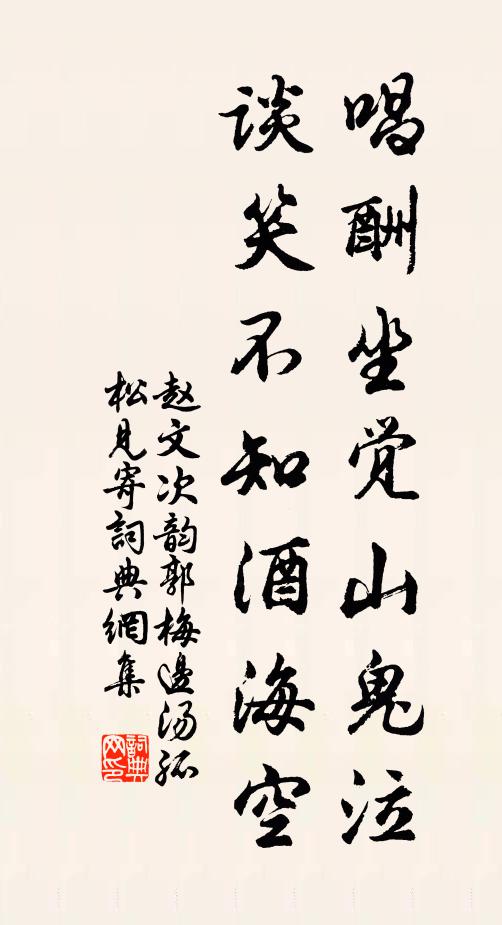 唱酬坐觉山鬼泣
谈笑不知酒海空
赵文次韵郭梅边汤孤
松见寄詞典網集
詞典网印